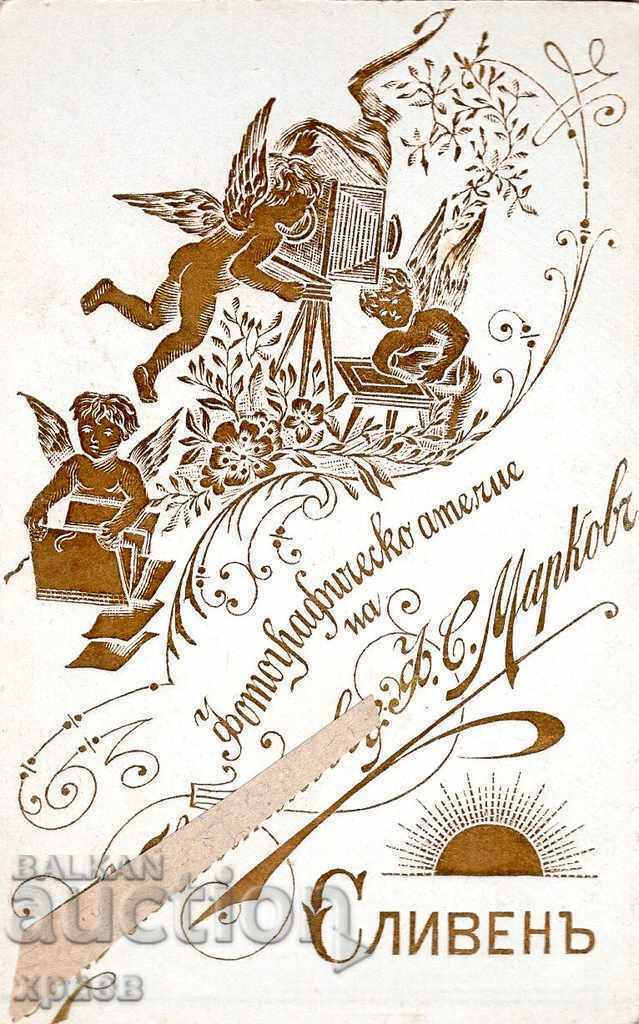 Фотографическо ателие
на
Ф. С. Марковъ
Сливенъ
BALKAN
auction
хризв